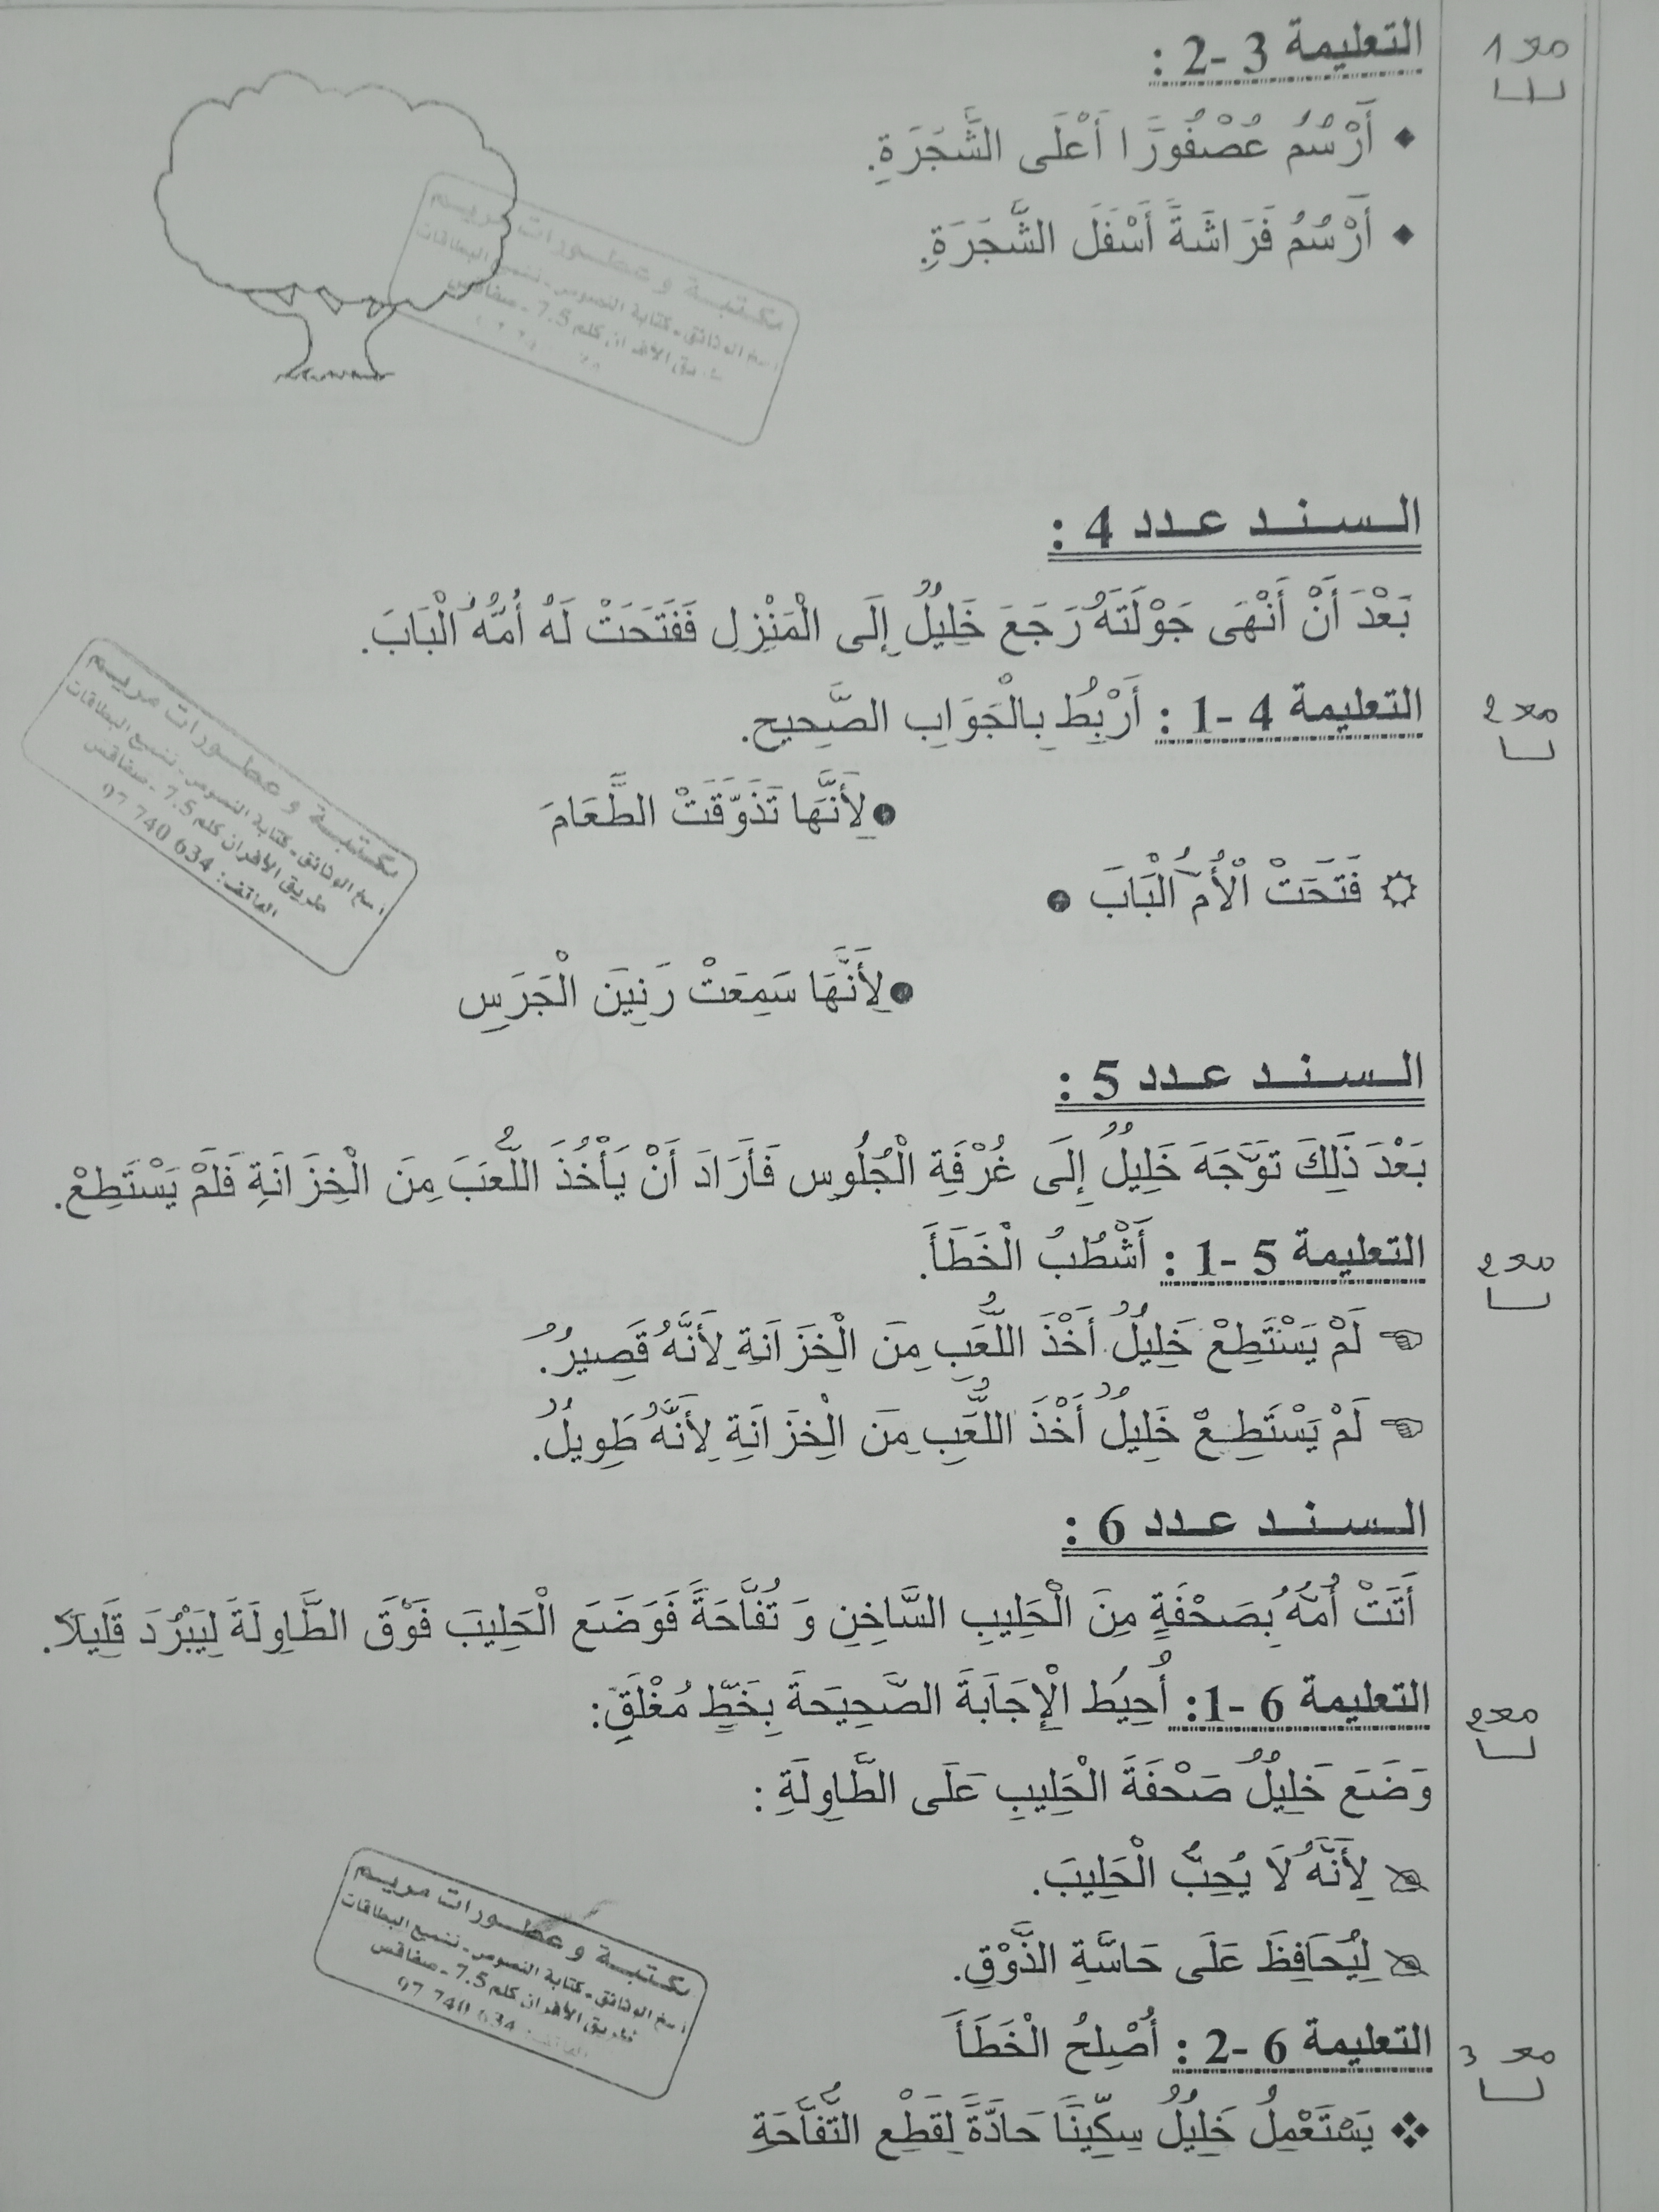 التعليمة 3 -2 :
مع 1
◆ أَرْسُمُ عُصْفُورًا أَعْلَى الشَّجَرَةِ.
◆ أَرْسُمُ فَرَاشَةً أَسْفَلَ الشَّجَرَةِ.
مكتبة و عطورات مريم
نسخ الوثائق - كتابة النصوص - تنميع البطاقات
طريق الأفران كلم 7.5 - صفاقس
السند عدد 4 :
بَعْدَ أَنْ أَنْهَى جَوْلَتَهُ رَجَعَ خَلِيلٌ إِلَى الْمَنْزِلِ فَفَتَحَتْ لَهُ أُمُّهُ الْبَابَ.
التعليمة 4 -1 : أَرْبِطُ بِالْجَوَابِ الصَّحِيحِ.
مع 2
لِأَنَّهَا تَذَوَّقَتْ الطَّعَامَ
فَتَحَتْ الْأُمُّ الْبَابَ
لِأَنَّهَا سَمِعَتْ رَنِينَ الْجَرَسِ
مكتبة و عطورات مريم
نسخ الوثائق - كتابة النصوص - تنميع البطاقات
طريق الأفران كلم 7.5 - صفاقس
الهاتف : 97 740 634
السند عدد 5 :
بَعْدَ ذَلِكَ تَوَجَّهَ خَلِيلٌ إِلَى غُرْفَةِ الْجُلُوسِ فَأَرَادَ أَنْ يَأْخُذَ اللُّعَبَ مِنَ الْخِزَانَةِ فَلَمْ يَسْتَطِعْ.
التعليمة 5 -1 : أَشْطُبُ الْخَطَأَ.
مع 2
لَمْ يَسْتَطِعْ خَلِيلٌ أَخْذَ اللُّعَبِ مِنَ الْخِزَانَةِ لِأَنَّهُ قَصِيرٌ.
لَمْ يَسْتَطِعْ خَلِيلٌ أَخْذَ اللُّعَبِ مِنَ الْخِزَانَةِ لِأَنَّهُ طَوِيلٌ.
السند عدد 6 :
أَتَتْ أُمُّهُ بِصَحْفَةٍ مِنَ الْحَلِيبِ السَّاخِنِ وَ تُفَّاحَةً فَوَضَعَ الْحَلِيبَ فَوْقَ الطَّاوِلَةَ لِيَبْرُدَ قَلِيلَاً.
التعليمة 6 -1: أُحِيطُ الْإِجَابَةَ الصَّحِيحَةَ بِخَطٍّ مُغْلَقٍ:
مع 2
وَضَعَ خَلِيلٌ صَحْفَةَ الْحَلِيبِ عَلَى الطَّاوِلَةِ :
لِأَنَّهُ لَا يُحِبُّ الْحَلِيبَ.
لِيُحَافِظَ عَلَى حَاسَّةِ الذَّوْقِ.
مكتبة و عطورات مريم
نسخ الوثائق - كتابة النصوص - تنميع البطاقات
طريق الأفران كلم 7.5 - صفاقس
الهاتف : 97 740 634
التعليمة 6 -2 : أُصْلِحُ الْخَطَأَ
مع 3
❖ يَسْتَعْمِلُ خَلِيلٌ سِكِّينًا حَادَّةً لِقَطْعِ التُّفَّاحَةِ